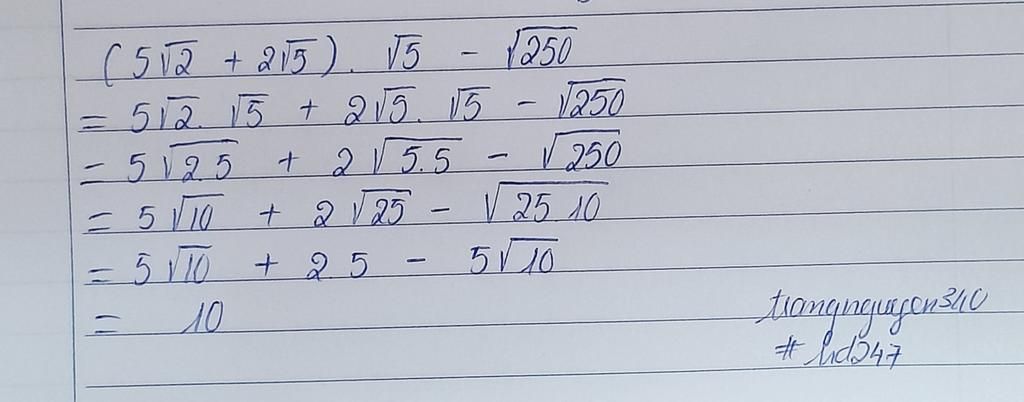 (5√2 + 2√5). √5 - √250
= 5√2. √5 + 2√5. √5 - √250
= 5√2.5 + 2√5.5 - √250
= 5√10 + 2√25 - √25 10
= 5√10 + 2 5 - 5√10
= 10
trangnguyen340
# hd247